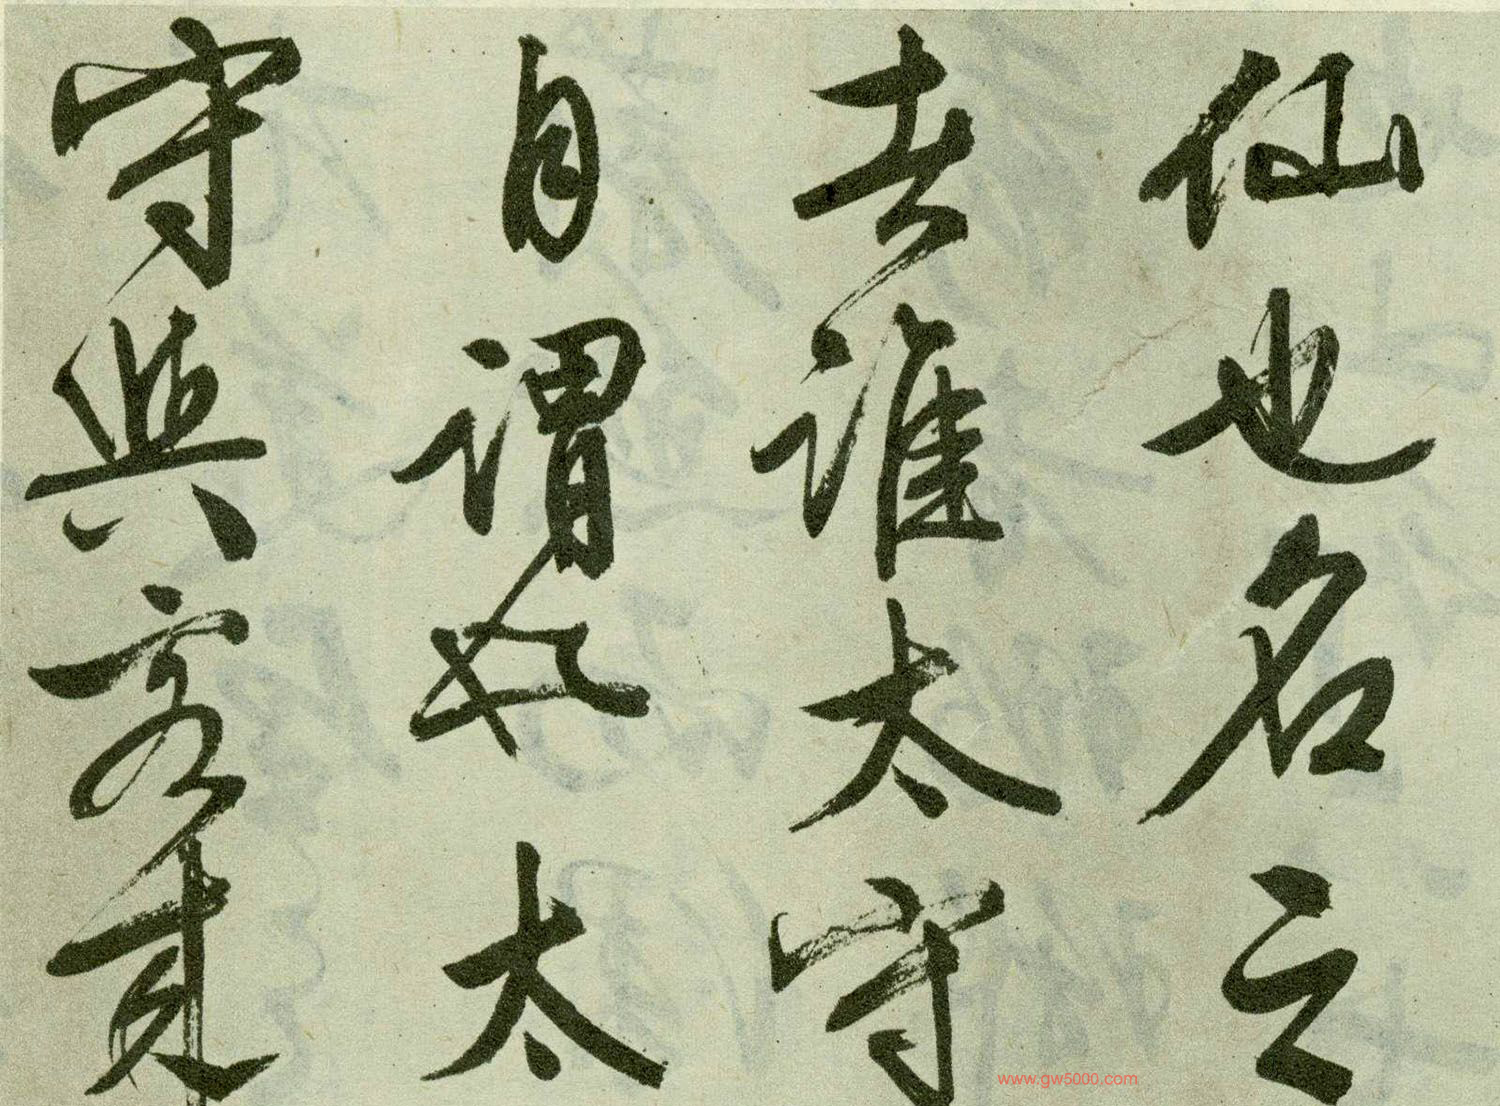 仙也名之
者誰太守
自謂也太
守與客來
www.gw5000.com